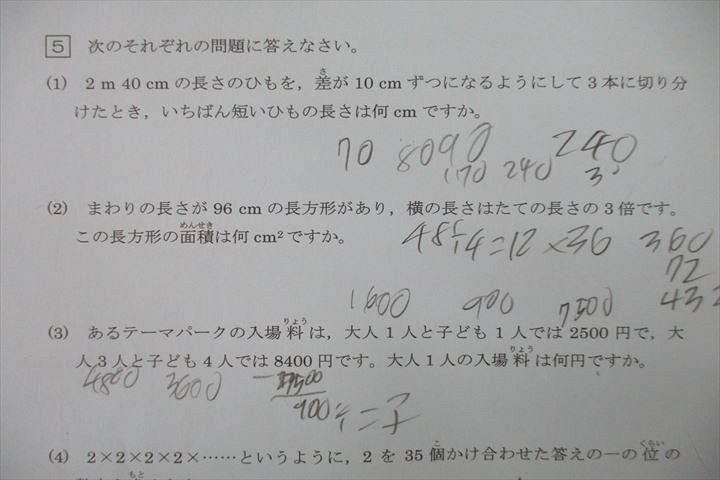 5 次のそれぞれの問題に答えなさい。
(1) 2 m 40 cm の長さのひもを，差が 10 cm ずつになるようにして 3 本に切り分
けたとき，いちばん短いひもの長さは何 cm ですか。
70 80 90 240
170 240 3
(2) まわりの長さが 96 cm の長方形があり，横の長さはたての長さの 3 倍です。
この長方形の面積は何 cm² ですか。
48÷4=12×36 360
72
1600 900 7500 432
(3) あるテーマパークの入場料は，大人 1 人と子ども 1 人では 2500 円で，大
人 3 人と子ども 4 人では 8400 円です。大人 1 人の入場料は何円ですか。
4800 3600
900
(4) 2×2×2×2×……というように，2 を 35 個かけ合わせた答えの一の位の